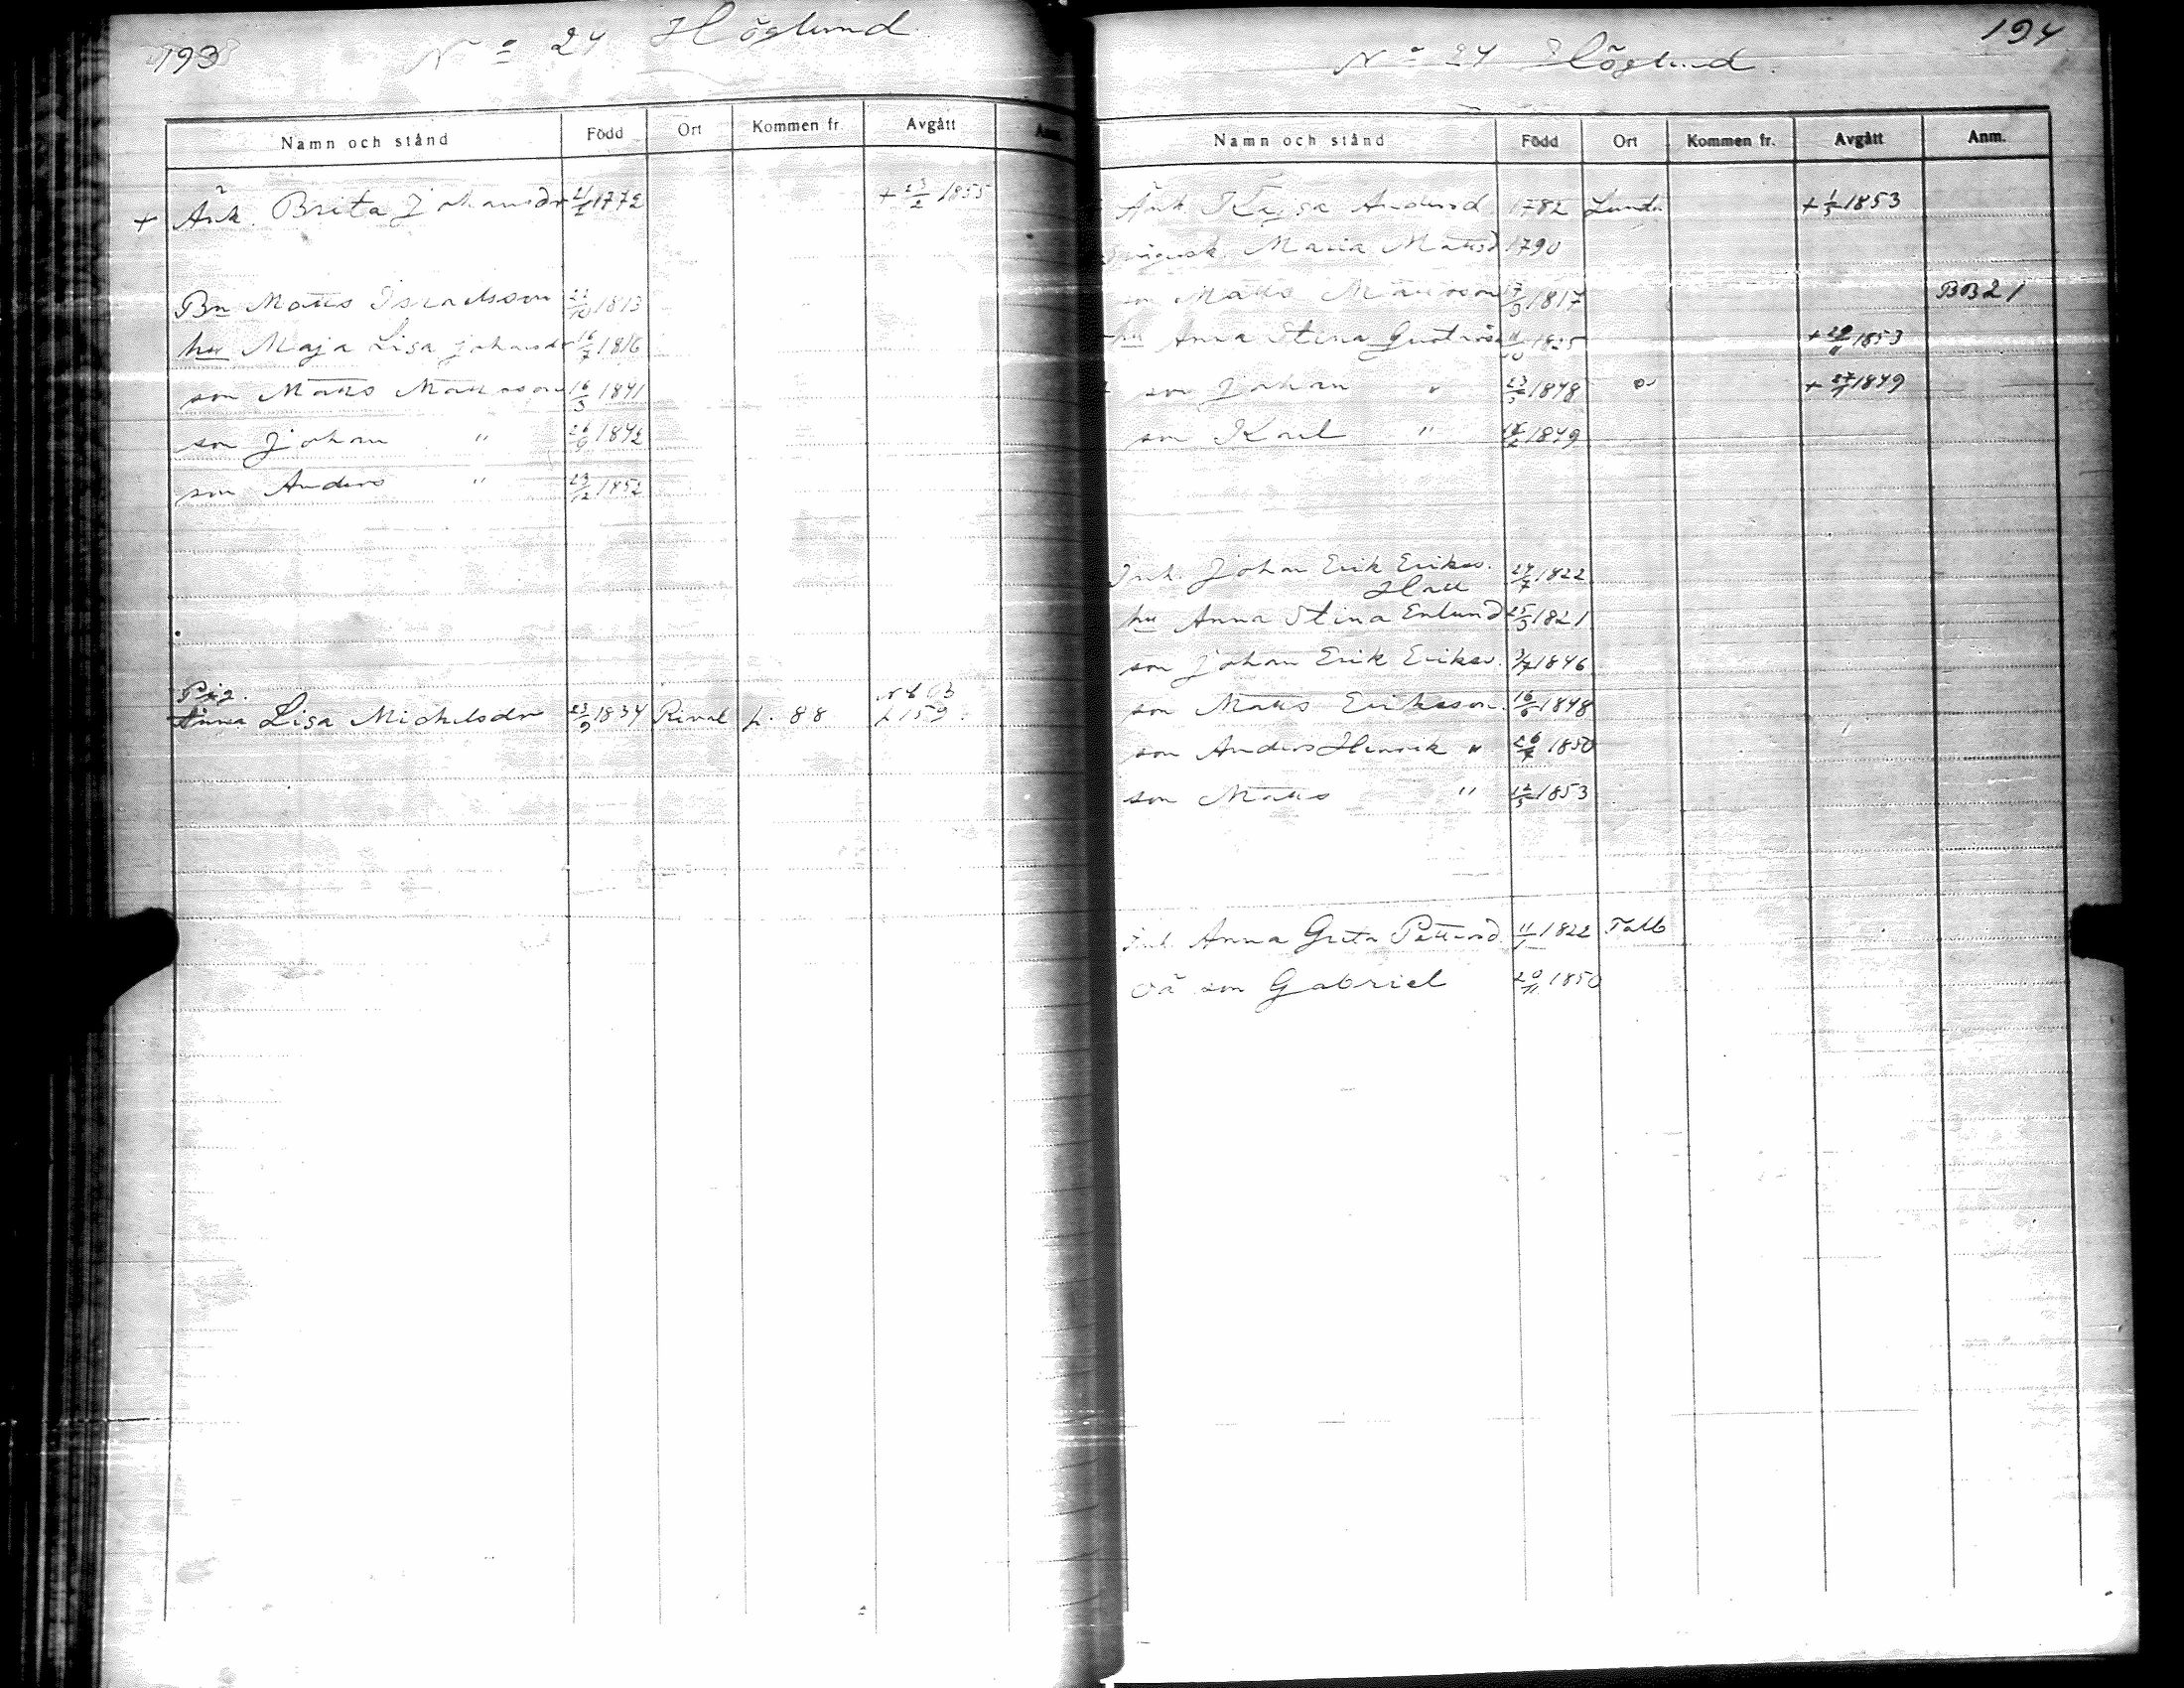 193
No 24 Höglund
Namn och stånd Född Ort Kommen fr. Avgått Anm.
+ Änk. Brita Johansdr 1772 + 23/2 1855
Bn Matts Israelsson 1813
hu Maja Lisa Johansdr 16/7 1816
son Matts Mattsson 16/3 1841
son Johan " 26/6 1842
son Anders " 1852
Pig.
Anna Lisa Mickelsdr 23/9 1834 Rimal p. 88 p 159
194
No 24 Höglund.
Namn och stånd Född Ort Kommen fr. Avgått Anm.
Änk. Kajsa Andersd 1782 Lundo + 1853
Maria Mattsd 1790
Matts Mattsson 1817 BB 21
hu Anna Stina 1825 + 1853
son Johan " 1848 + 1849
son Karl " 1849
Inh. Johan Erik Eriks.
Hall 24/7 1822
hu Anna Stina Enlund 25/3 1821
son Johan Erik Eriks. 3/7 1846
son Matts Eriksson. 16/6 1848
son Anders Henrik " 1850
son Matts " 12/5 1853
Inh. Anna Greta Pettersd. 1822
oä son Gabriel 20/11 1850